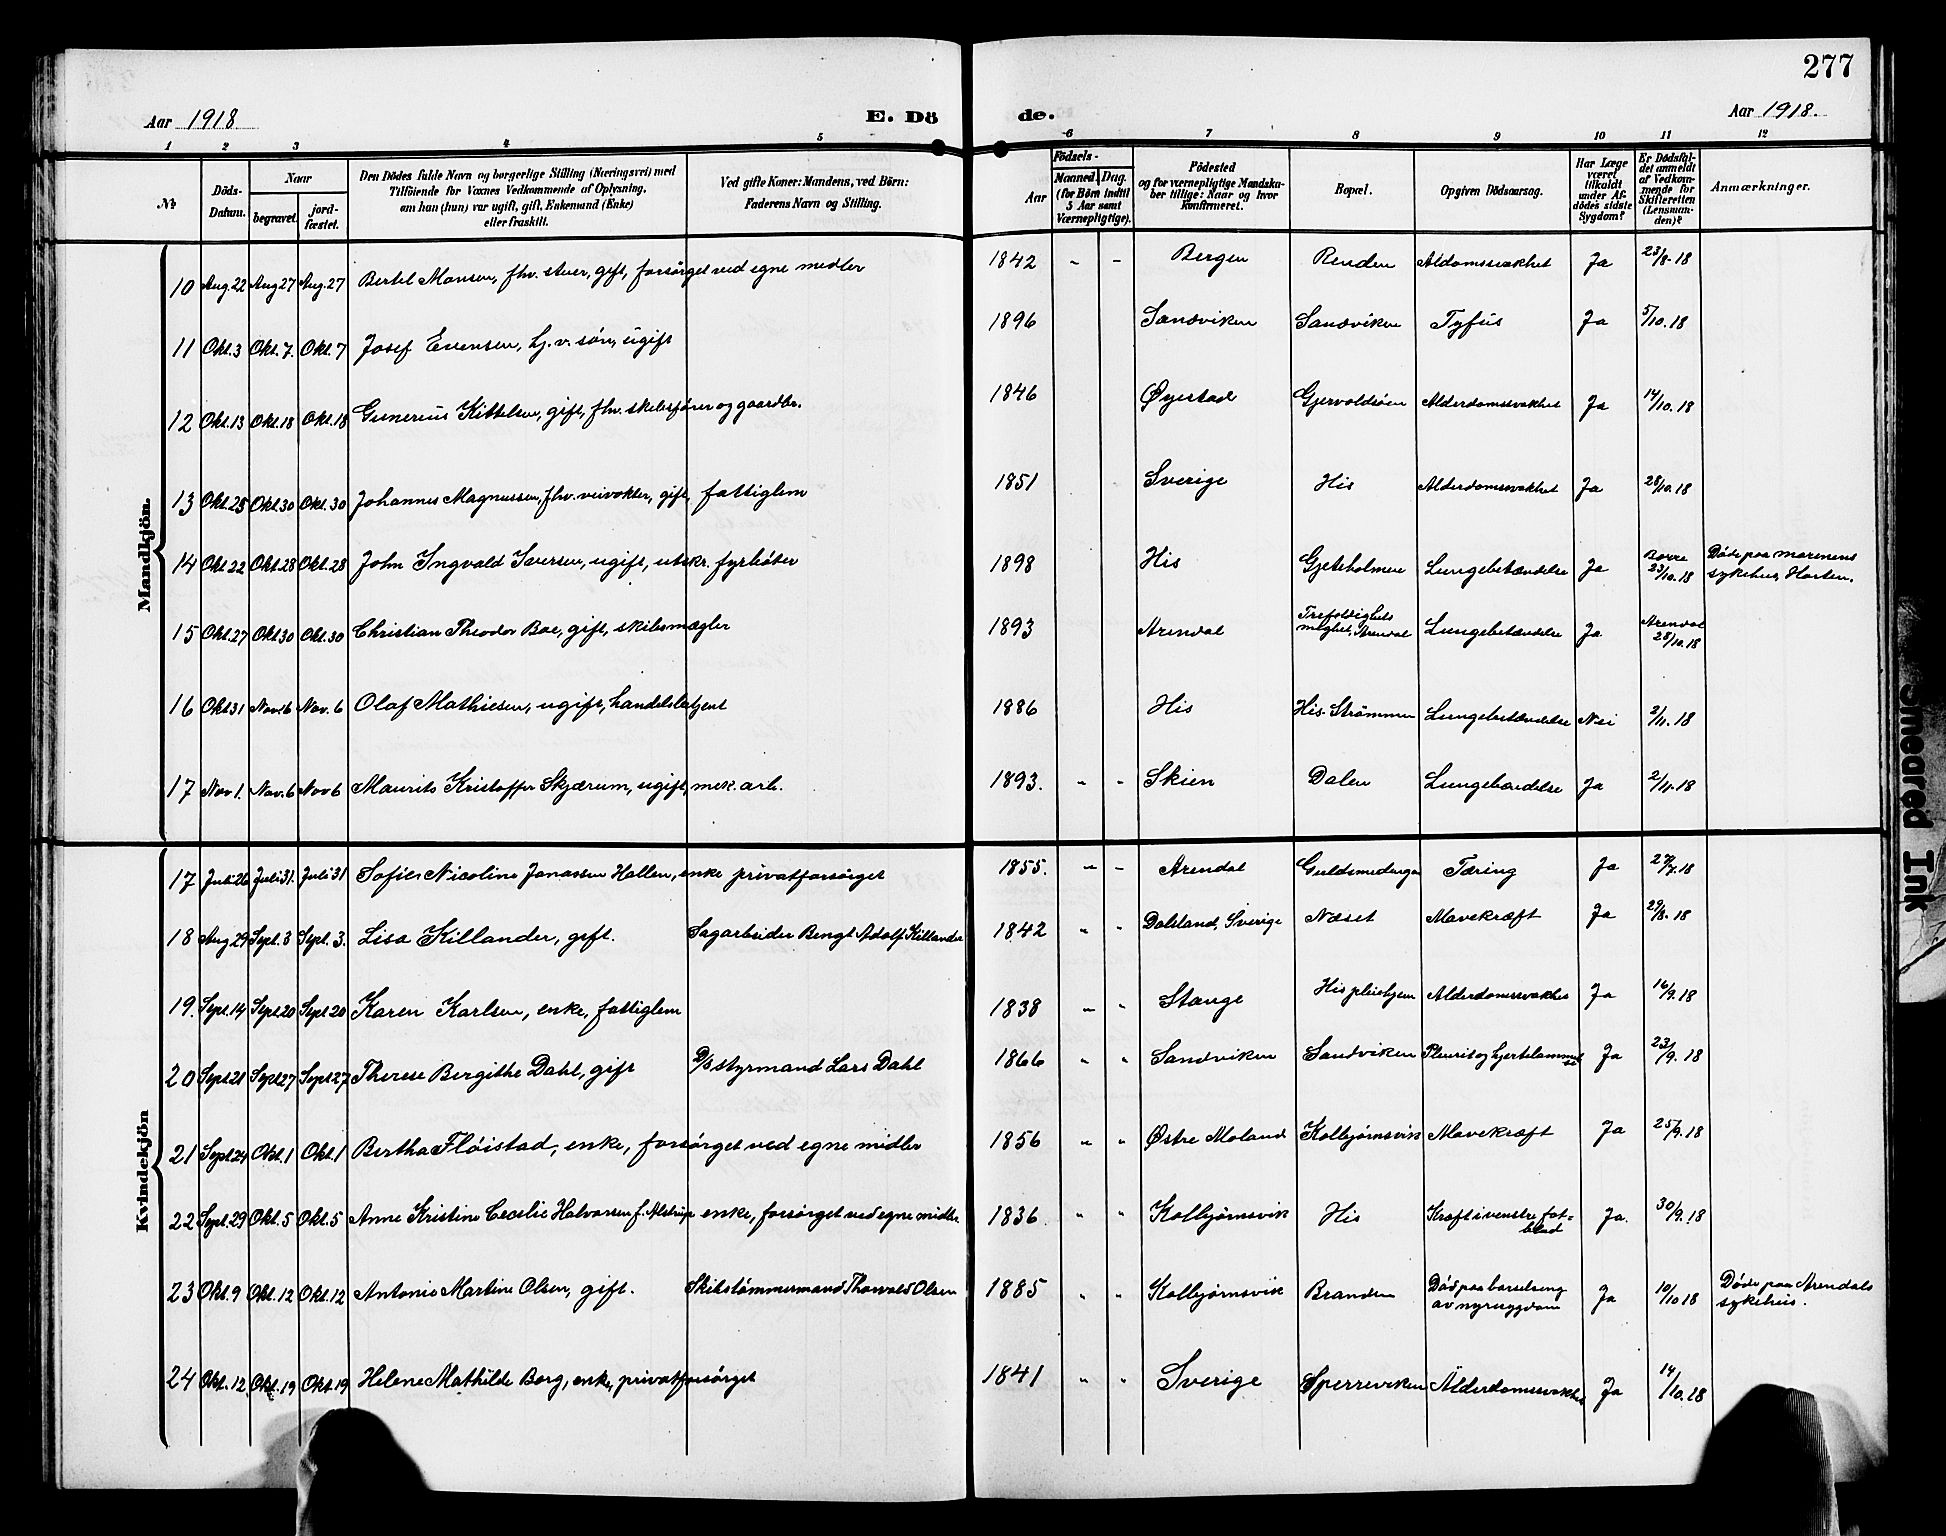 277
Aar 1918
E. Dö
de.
Aar 1918.
1 2 3 4 5 6 7 8 9 10 11 12
No
Döds-Datum.
Naar
begravet.
jord-fæstet.
Den Dödes fulde Navn og borgerlige Stilling (Næringsvei) med
Tilföiende for Voxnes Vedkommende af Oplysning,
om han (hun) var ugift, gift, Enkemand (Enke)
eller fraskilt.
Ved gifte Koner: Mandens, ved Börn:
Faderens Navn og Stilling.
Födsels-
Aar
Maaned. Dag.
(for Börn indtil
5 Aar samt
Værnepligtige).
Födested
og for værnepligtige Mandska-
ber tillige: Naar og hvor
konfirmeret.
Bopæl.
Opgiven Dödsaarsag.
Har Læge
været
tilkaldt
under Af-
dödes sidste
Sygdom?
Er Dödsfal-
det anmeldt
af Vedkom-
mende for
Skifteretten
(Lensman-
den)?
Anmærkninger.
Mandkjön.
10 Aug. 22 Aug 27 Aug. 27 Bertel Monsen, fhv. stuer, gift, forsörget ved egne midler 1842 - - Bergen Renden Aldomssvakhet Ja 23/8.18
11 Okt. 3 Okt. 7. Okt. 7 Josef Evensen, hj. v. søn, ugift 1896 Sandviken Sandviken Tyfus Ja 5/10.18
12 Okt. 13 Okt. 18 Okt. 18 Gunerius Kittelsen, gift, fhv. skibsfører og gaardbr. 1846 Øyestad Gjervoldsøen Alderdomssvakhet Ja 14/10.18
13 Okt. 25 Okt. 30 Okt. 30 Johannes Magnussen, fhv. veivokter, gift, fattiglem 1851 Sverige His Alderdomssvakhet Ja 28/10.18
14 Okt. 22 Okt. 28 Okt. 28 John Ingvald Iversen, ugift, utskr. fyrbøter 1898 His Gjeteholmen Lungebetændelse Ja Borre 23/10.18 Døde paa marinens
sykehus, Horten.
15 Okt. 27 Okt 30 Okt. 30 Christian Theodor Boe, gift, skibsmægler 1893 Arendal Trefoldighets
menighet, Arendal Lungebetændelse Ja Arendal 28/10.18
16 Okt 31 Nov. 6 Nov. 6 Olaf Mathiesen, ugift, handelsbetjent 1886 His His-Strömmen Lungebetændelse Nei 2/11.18
17 Nov 1. Nov. 6 Nov 6 Maurits Kristoffer Skjærum, ugift, mek. arb. 1893. - - Skien Dalen Lungebændelse Ja 2/11.18
Kvindekjön
17 Juli 26 Juli 31. Juli 31 Sofie Nicoline Jonassen Hallen, enke privatforsørget 1855. - - Arendal Guldsmedengen Tæring Ja 27/7.18
18 Aug 29 Sept. 3 Sept. 3. Lisa Killander, gift. Sagarbeider Bengt Adolf Killander 1842 " " Dalsland, Sverige Næset Mavekræft Ja 29/8.18
19. Sept. 14 Sept 20 Sept 20 Karen Karlsen, enke, fattiglem 1838 " " Stange His pleiehjem Alderdomssvakhet Ja 16/9.18
20 Sept 21 Sept 27 Sept 27 Therese Bergithe Dahl, gift D/S styrmand Lars Dahl 1866 " " Sandviken Sandviken Pleurit og hjertelammel
se Ja 23/9.18
21 Sept. 24 Okt. 1 Okt. 1 Bertha Fløistad, enke, forsørget ved egne midler 1856 " " Østre Moland Kolbjørnsvik Mavekræft Ja 25/9.18
22 Sept. 29 Okt. 5 Okt. 5 Anne Kristine Cecilie Halvorsen f. Alstrup enke, forsørget ved egne midler 1836. " " Kolbjørnsvik His Kræft i venstre fot-
blad Ja. 30/9.18
23 Okt. 9 Okt. 12 Okt. 12 Antonie Martine Olsen, gift. Skibstømmermand Thorvald Olsen 1885 " " Kolbjørnsvik Branden Død paa barselseng
av nyresygdom Ja 10/10 18 Døde paa Arendals
sykehus.
24 Okt. 12 Okt. 19 Okt. 19 Helene Mathilde Borg, enke, privatforsørget 1841 " " Sverige Sperreviken Alderdomssvakhet Ja 14/10.18
Smeared Ink